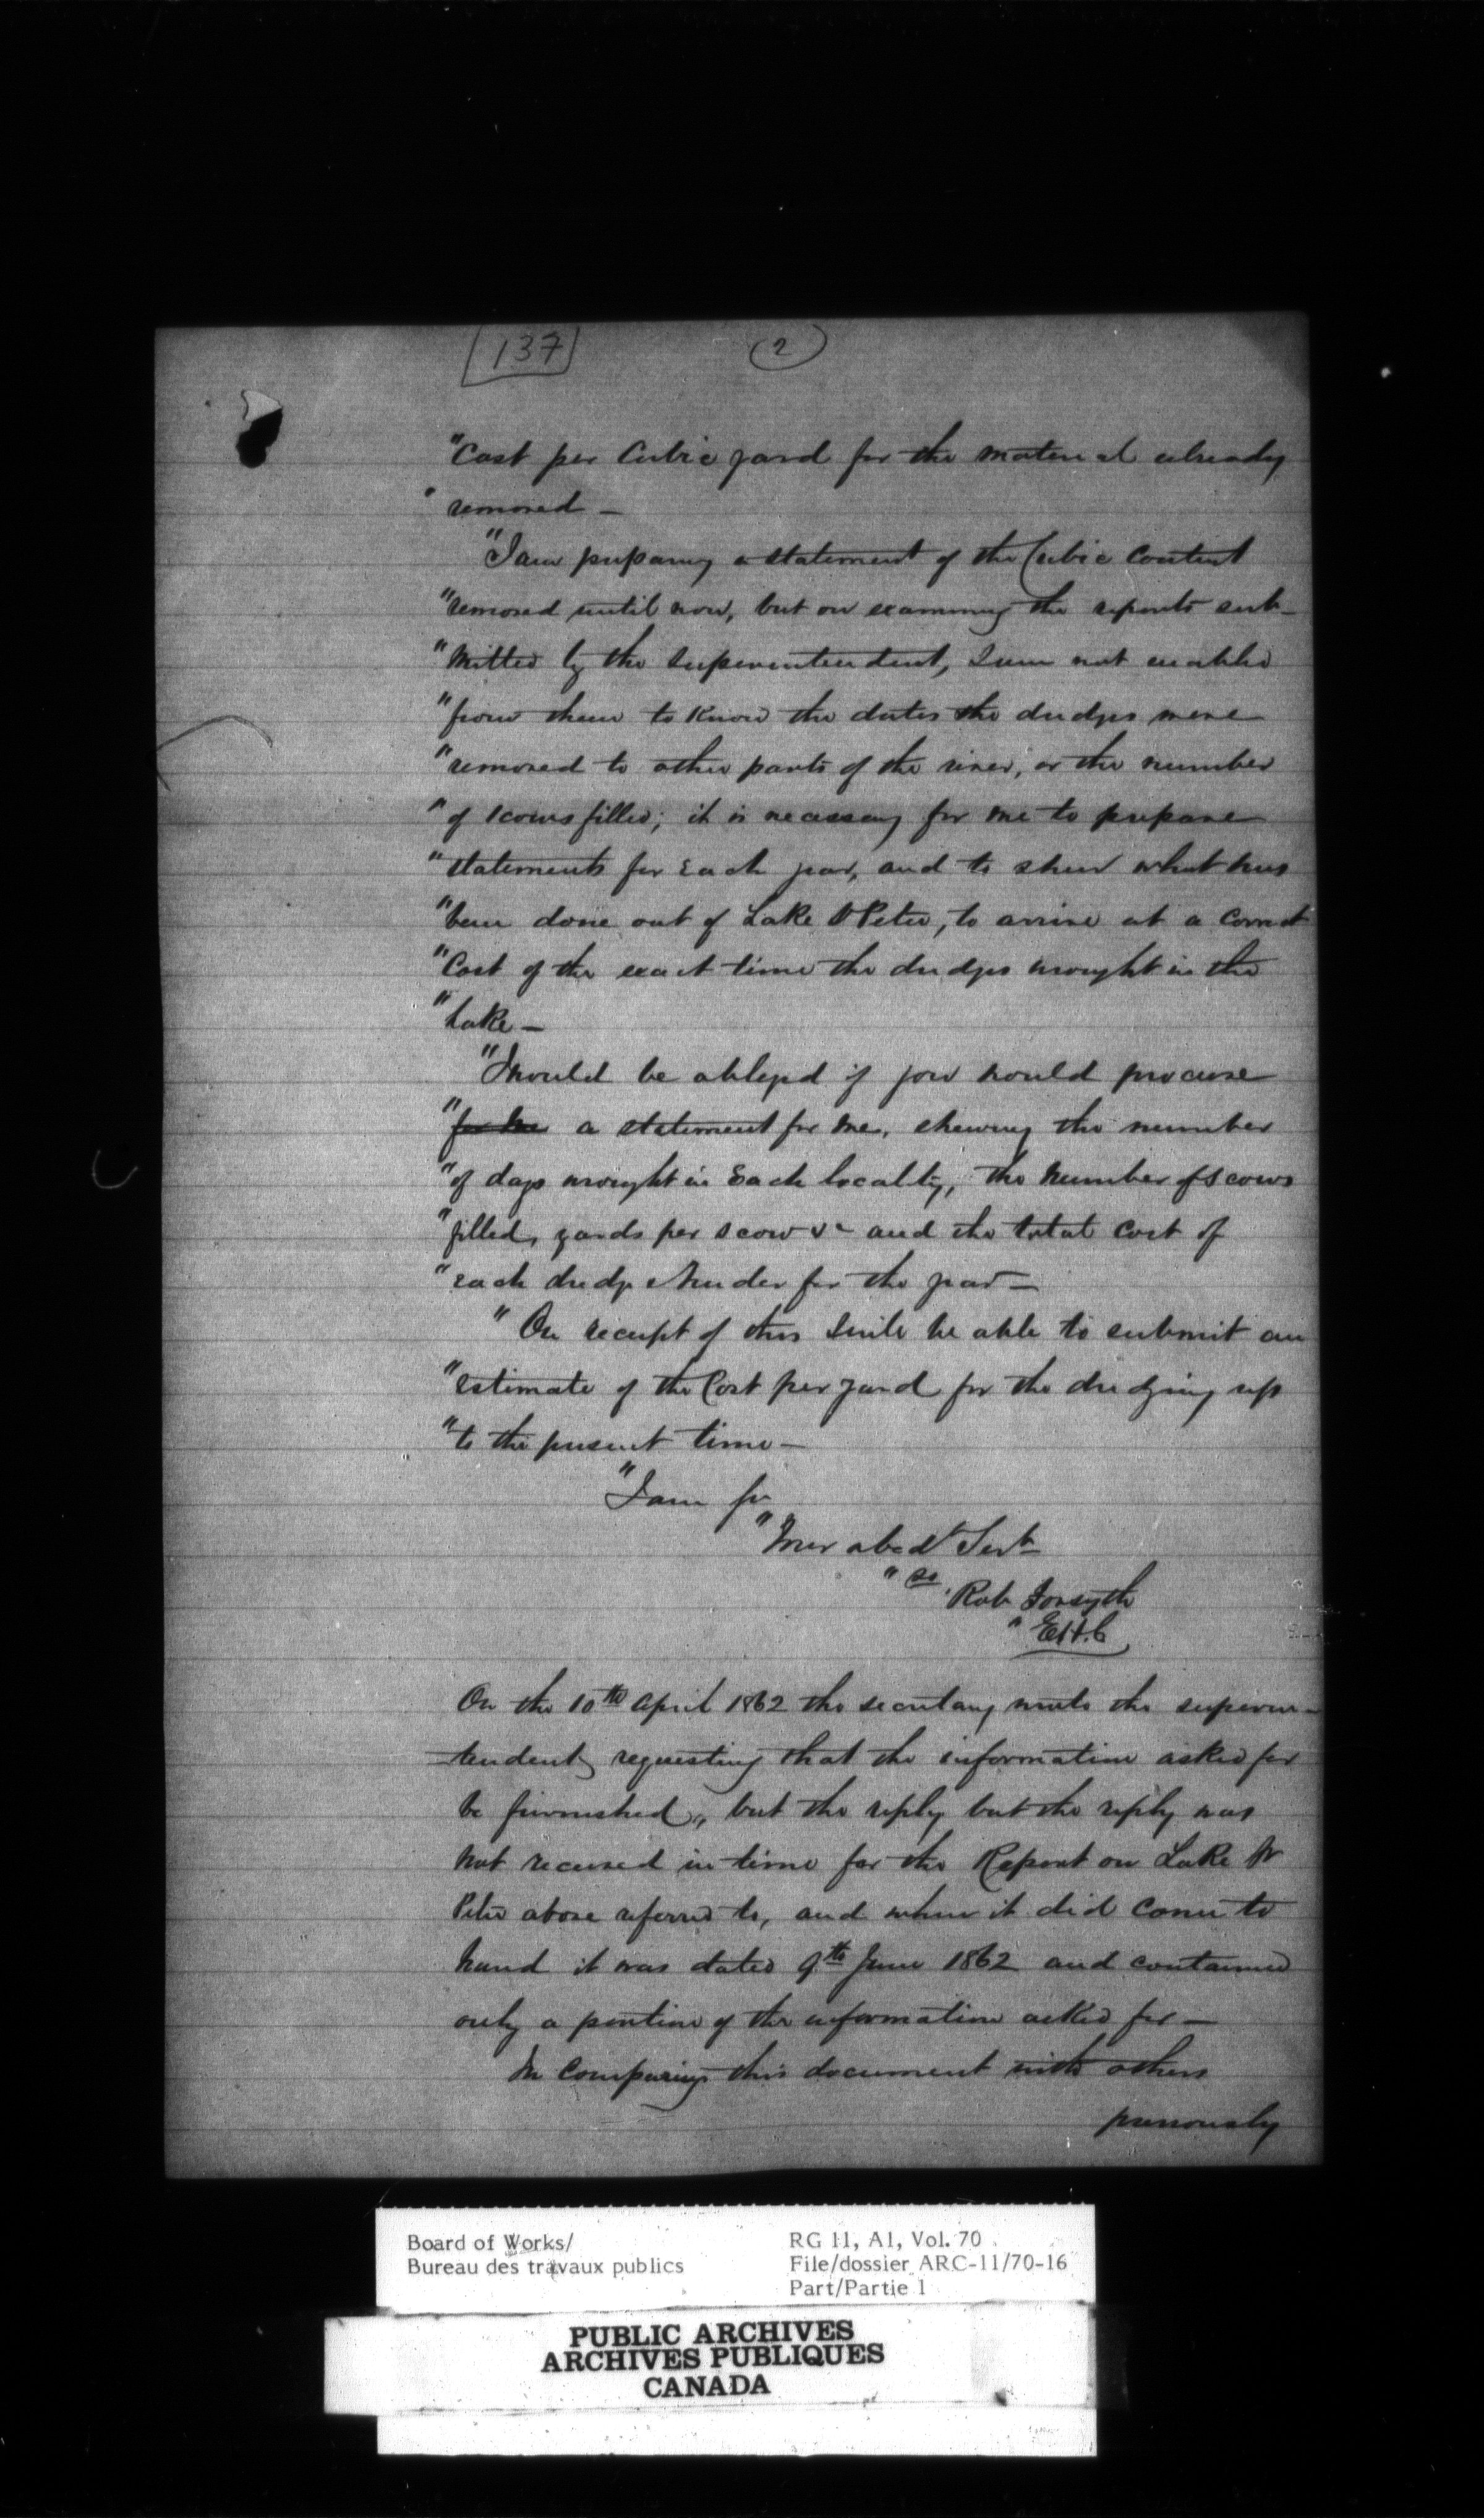 137
2
"Cost per Cubic yard for the material already
" removed —
"I am preparing a statement of the Cubic Content
"removed until now, but on examining the reports sub-
"mitted by the Superintendent, I am not enabled
"from them to know the dates the dredges were
"removed to other parts of the river, or the number
"of scows filled; it is necessary for me to prepare
"statements for Each year, and to shew what has
"been done out of Lake St Peter, to arrive at a correct
"Cost of the exact time the dredges wrought in the
"Lake —
"I would be obliged if you would procure
"for me a statement for me, shewing the number
"of days wrought in Each locality, the number of scows
"filled, yards per scow &c and the total cost of
"each dredge & tender for the year —
" On receipt of this I will be able to submit an
"estimate of the Cost per yard for the dredging up
"to the present time —
"I am
"Your obedt Servt
" Rob Forsyth
" E.H.C
On the 10th April 1862 the secretary writes the superin-
tendent, requesting that the information asked for
be furnished, but the reply but the reply was
not received in time for the Report on Lake St
Peter above referred to, and when it did come to
hand it was dated 9th June 1862 and contained
only a portion of the information asked for —
In Comparing this document with others
previously
Board of Works/
Bureau des travaux publics
RG 11, A1, Vol. 70
File/dossier ARC-11/70-16
Part/Partie 1
PUBLIC ARCHIVES
ARCHIVES PUBLIQUES
CANADA